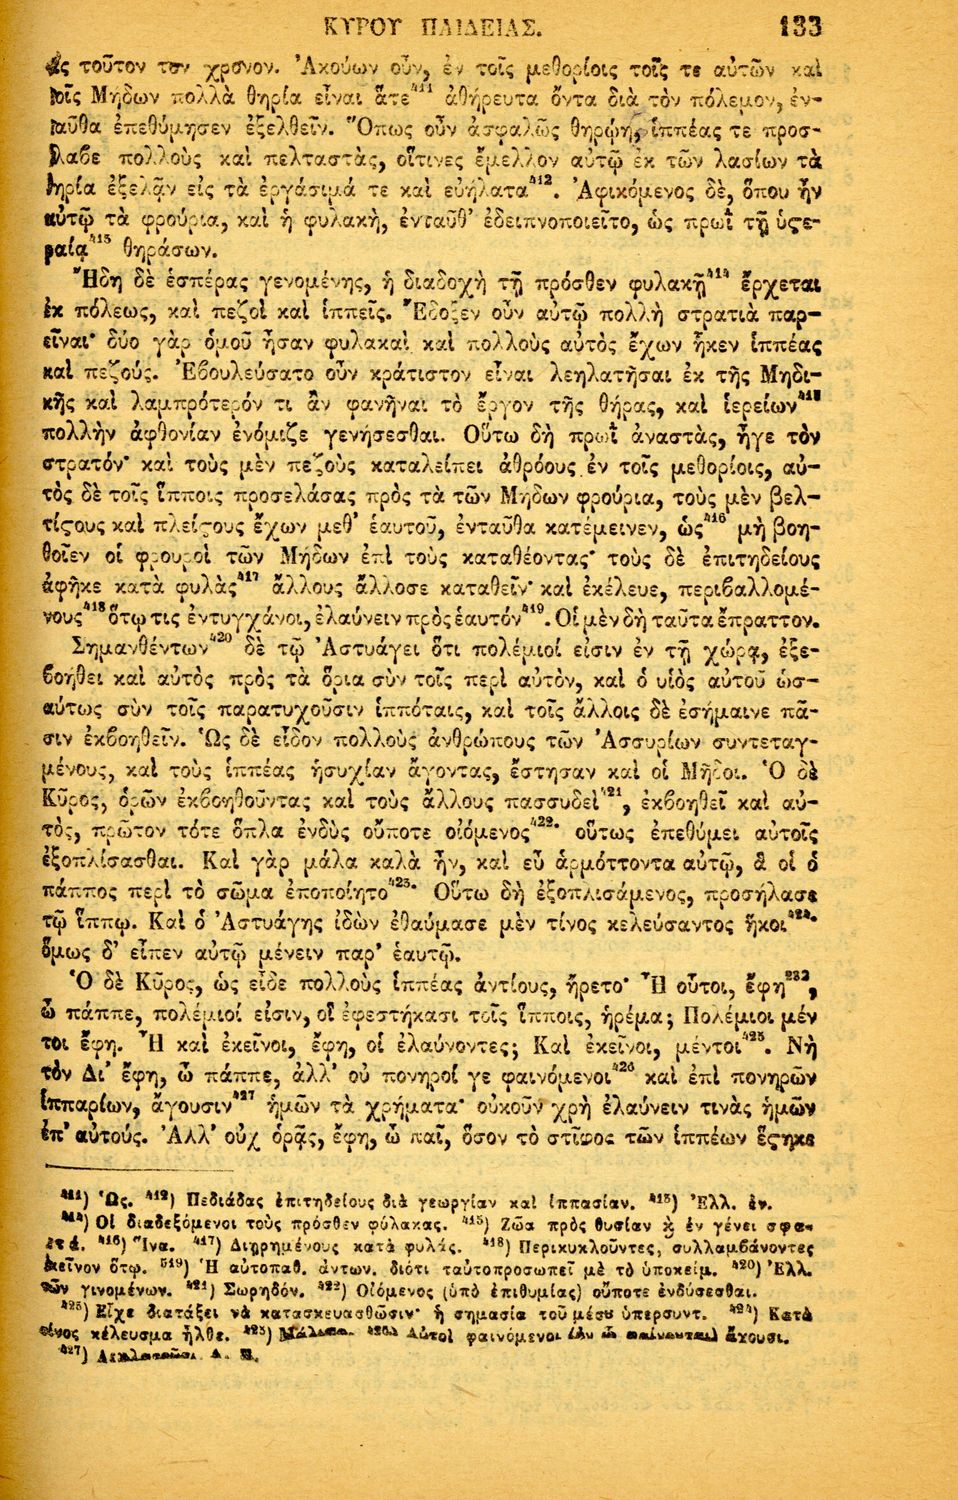 ΚΥΡΟΥ ΠΑΙΔΕΙΑΣ. 133
εἰς τοῦτον τὸν χρόνον. Ἀκούων οὖν, ἐν τοῖς μεθορίοις τοῖς τε αὐτῶν καὶ
τοῖς Μήδων πολλὰ θηρία εἶναι ἅτε⁴¹¹ ἀθήρευτα ὄντα διὰ τὸν πόλεμον, ἐν-
ταῦθα ἐπεθύμησεν ἐξελθεῖν. Ὅπως οὖν ἀσφαλῶς θηρῴη, ἱππέας τε προσ-
έλαβε πολλοὺς καὶ πελταστὰς, οἵτινες ἔμελλον αὐτῷ ἐκ τῶν λασίων τὰ
θηρία ἐξελᾷν εἰς τὰ ἐργάσιμά τε καὶ εὐήλατα⁴¹². Ἀφικόμενος δὲ, ὅπου ἦν
αὐτῷ τὰ φρούρια, καὶ ἡ φυλακὴ, ἐνταῦθ' ἐδειπνοποιεῖτο, ὡς πρωῒ τῇ ὑϛε-
ραίᾳ⁴¹³ θηράσων.
Ἤδη δὲ ἑσπέρας γενομένης, ἡ διαδοχὴ τῇ πρόσθεν φυλακῇ⁴¹⁴ ἔρχεται
ἐκ πόλεως, καὶ πεζοὶ καὶ ἱππεῖς. Ἔδοξεν οὖν αὐτῷ πολλὴ στρατιὰ παρ-
εῖναι· δύο γὰρ ὁμοῦ ἦσαν φυλακαὶ καὶ πολλοὺς αὐτὸς ἔχων ἧκεν ἱππέας
καὶ πεζούς. Ἐβουλεύσατο οὖν κράτιστον εἶναι λεηλατῆσαι ἐκ τῆς Μηδι-
κῆς καὶ λαμπρότερόν τι ἂν φανῆναι τὸ ἔργον τῆς θήρας, καὶ ἱερείων⁴¹⁵
πολλὴν ἀφθονίαν ἐνόμιζε γενήσεσθαι. Οὕτω δὴ πρωῒ ἀναστὰς, ἦγε τὸν
στρατόν· καὶ τοὺς μὲν πεζοὺς καταλείπει ἀθρόους ἐν τοῖς μεθορίοις, αὐ-
τὸς δὲ τοῖς ἵπποις προσελάσας πρὸς τὰ τῶν Μήδων φρούρια, τοὺς μὲν βελ-
τίϛους καὶ πλείϛους ἔχων μεθ' ἑαυτοῦ, ἐνταῦθα κατέμεινεν, ὡς⁴¹⁶ μὴ βοη-
θοῖεν οἱ φρουροὶ τῶν Μήδων ἐπὶ τοὺς καταθέοντας· τοὺς δὲ ἐπιτηδείους
ἀφῆκε κατὰ φυλὰς⁴¹⁷ ἄλλους ἄλλοσε καταθεῖν· καὶ ἐκέλευε, περιβαλλομέ-
νους⁴¹⁸ ὅτῳ τις ἐντυγχάνοι, ἐλαύνειν πρὸς ἑαυτόν⁴¹⁹. Οἱ μὲν δὴ ταῦτα ἔπραττον.
Σημανθέντων⁴²⁰ δὲ τῷ Ἀστυάγει ὅτι πολέμιοί εἰσιν ἐν τῇ χώρᾳ, ἐξε-
βοήθει καὶ αὐτὸς πρὸς τὰ ὅρια σὺν τοῖς περὶ αὐτὸν, καὶ ὁ υἱὸς αὐτοῦ ὡσ-
αύτως σὺν τοῖς παρατυχοῦσιν ἱππόταις, καὶ τοῖς ἄλλοις δὲ ἐσήμαινε πᾶ-
σιν ἐκβοηθεῖν. Ὡς δὲ εἶδον πολλοὺς ἀνθρώπους τῶν Ἀσσυρίων συντεταγ-
μένους, καὶ τοὺς ἱππέας ἡσυχίαν ἄγοντας, ἔστησαν καὶ οἱ Μῆδοι. Ὁ δὲ
Κῦρος, ὁρῶν ἐκβοηθοῦντας καὶ τοὺς ἄλλους πασσυδεὶ⁴²¹, ἐκβοηθεῖ καὶ αὐ-
τὸς, πρῶτον τότε ὅπλα ἐνδὺς οὔποτε οἰόμενος⁴²²· οὕτως ἐπεθύμει αὐτοῖς
ἐξοπλίσασθαι. Καὶ γὰρ μάλα καλὰ ἦν, καὶ εὖ ἁρμόττοντα αὐτῷ, ἃ οἱ ὁ
πάππος περὶ τὸ σῶμα ἐποποίητο⁴²³· Οὕτω δὴ ἐξοπλισάμενος, προσήλασε
τῷ ἵππῳ. Καὶ ὁ Ἀστυάγης ἰδὼν ἐθαύμασε μὲν τίνος κελεύσαντος ἥκοι⁴²⁴·
ὅμως δ' εἶπεν αὐτῷ μένειν παρ' ἑαυτῷ.
Ὁ δὲ Κῦρος, ὡς εἶδε πολλοὺς ἱππέας ἀντίους, ἤρετο· Ἦ οὗτοι, ἔφη²³², 
ὦ πάππε, πολέμιοί εἰσιν, οἳ ἐφεστήκασι τοῖς ἵπποις, ἠρέμα; Πολέμιοι μέν
τοι ἔφη. Ἦ καὶ ἐκεῖνοι, ἔφη, οἱ ἐλαύνοντες; Καὶ ἐκεῖνοι, μέντοι⁴²⁵. Νὴ
τὸν Δί' ἔφη, ὦ πάππε, ἀλλ' οὐ πονηροί γε φαινόμενοι⁴²⁶ καὶ ἐπὶ πονηρῶν
ἱππαρίων, ἄγουσιν⁴²⁷ ἡμῶν τὰ χρήματα· οὐκοῦν χρὴ ἐλαύνειν τινὰς ἡμῶν
ἐπ' αὐτούς. Ἀλλ' οὐχ ὁρᾷς, ἔφη, ὦ παῖ, ὅσον τὸ στῖφος τῶν ἱππέων ἕϛηκε
⁴¹¹) Ὡς. ⁴¹²) Πεδιάδας ἐπιτηδείους διὰ γεωργίαν καὶ ἱππασίαν. ⁴¹³) Ἑλλ. ἐν.
⁴¹⁴) Οἱ διαδεξόμενοι τοὺς πρόσθεν φύλακας. ⁴¹⁵) Ζῶα πρὸς θυσίαν ϗ ἐν γένει σφα-
κτά. ⁴¹⁶) Ἵνα. ⁴¹⁷) Διῃρημένους κατὰ φυλάς. ⁴¹⁸) Περικυκλοῦντες, συλλαμβάνοντες
ἐκεῖνον ὅτῳ. ⁵¹⁹) Ἡ αὐτοπαθ. ἀντων. διότι ταὐτοπροσωπεῖ μὲ τὸ ὑποκείμ. ⁴²⁰) Ἑλλ.
τῶν γινομένων. ⁴²¹) Σωρηδόν. ⁴²²) Οἰόμενος (ὑπὸ ἐπιθυμίας) οὔποτε ἐνδύσεσθαι.
⁴²³) Εἶχε διατάξει νὰ κατασκευασθῶσιν· ἡ σημασία τοῦ μέσȣ ὑπερσυντ. ⁴²⁴) Κατὰ
τίνος κέλευσμα ἦλθε. ⁴²⁵) Μάλιστα. ⁴²⁶) Αὐτοὶ φαινόμενοι ἄγουσι.
⁴²⁷)